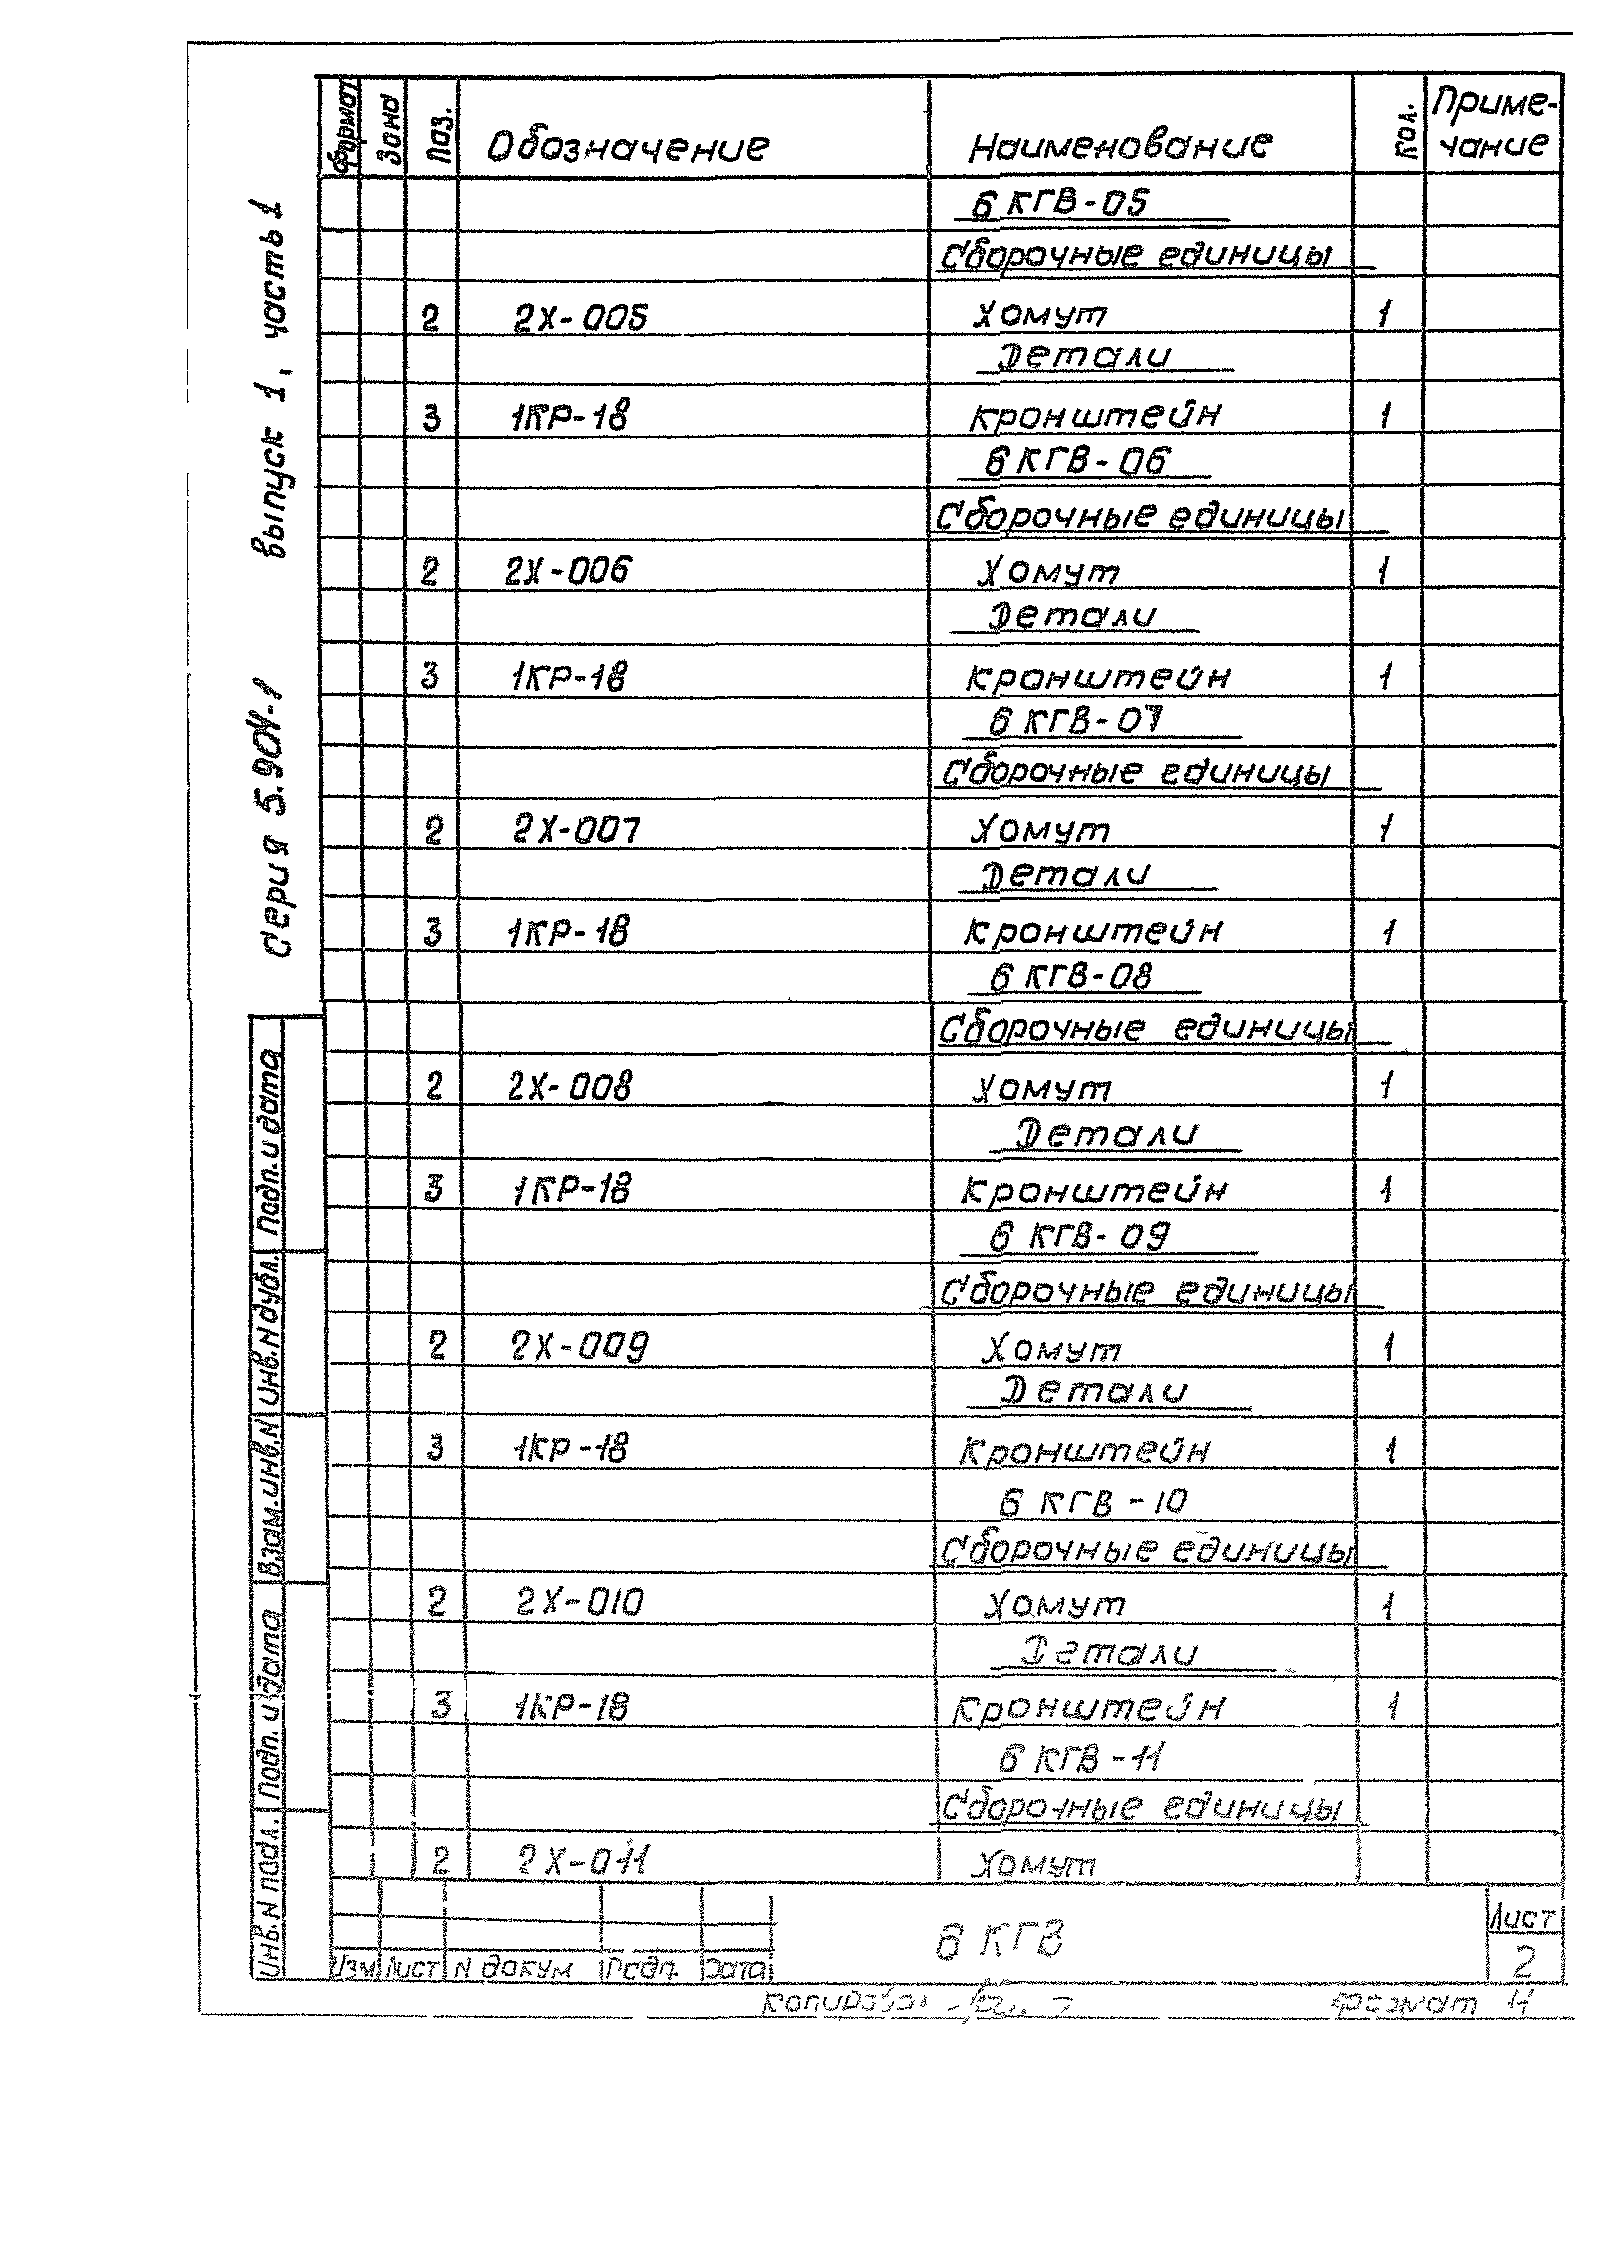 Серия 5.904-1 выпуск 1, часть 1
Формат Зона Поз. Обозначение Наименование Кол. Приме-
чание
6 КГВ-05
Сборочные единицы
2 2Х-005 Хомут 1
Детали
3 1КР-18 Кронштейн 1
6 КГВ-06
Сборочные единицы
2 2Х-006 Хомут 1
Детали
3 1КР-18 Кронштейн 1
6 КГВ-07
Сборочные единицы
2 2Х-007 Хомут 1
Детали
3 1КР-18 Кронштейн 1
6 КГВ-08
Сборочные единицы
2 2Х-008 Хомут 1
Детали
3 1КР-18 Кронштейн 1
6 КГВ-09
Сборочные единицы
2 2Х-009 Хомут 1
Детали
3 1КР-18 Кронштейн 1
6 КГВ-10
Сборочные единицы
2 2Х-010 Хомут 1
Детали
3 1КР-18 Кронштейн 1
6 КГВ-11
Сборочные единицы
2 2Х-011 Хомут
Инв. N подл. Подп. и дата Взам. инв. N Инв. N дубл. Подп. и дата
Изм Лист N докум Подп. Дата
6 КГВ
Лист
2
Копировал Формат